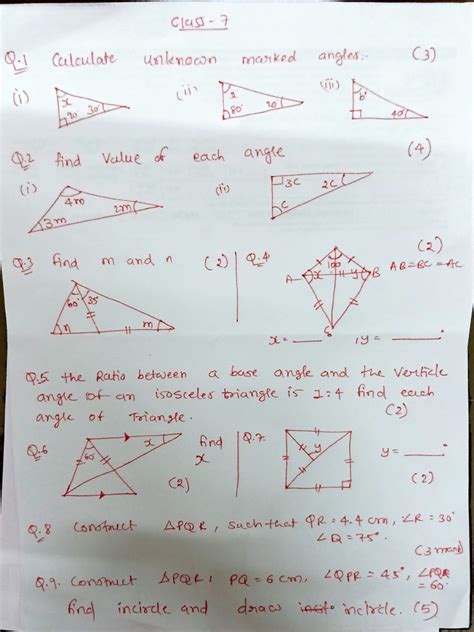 Class - 7
Q.1 Calculate unknown marked angles:- (3)
(i) x 90° 30° (ii) 80° 20° (iii) b° 40°
Q.2 find Value of each angle (4)
(i) 4m 3m 2m (ii) 3C 2C C
Q.3 find m and n (2) Q.4 (2)
60° 35 n m A x 100 y B C AB=BC=AC
x = ____ , y = ____°
Q.5. the Ratio between a base angle and the Verticle
angle of an isosceles triangle is 1:4 find each
angle of Triangle. (2)
Q.6 60° x find x (2) Q.7. y y = ____° (2)
Q.8 Construct △PQR, such that QR = 4.4 cm, ∠R = 30°
∠Q = 75° (3 mark)
Q.9. Construct △PQR, PQ = 6 cm, ∠QPR = 45°, ∠PQR = 60°
find incircle and draw incircle. (5)